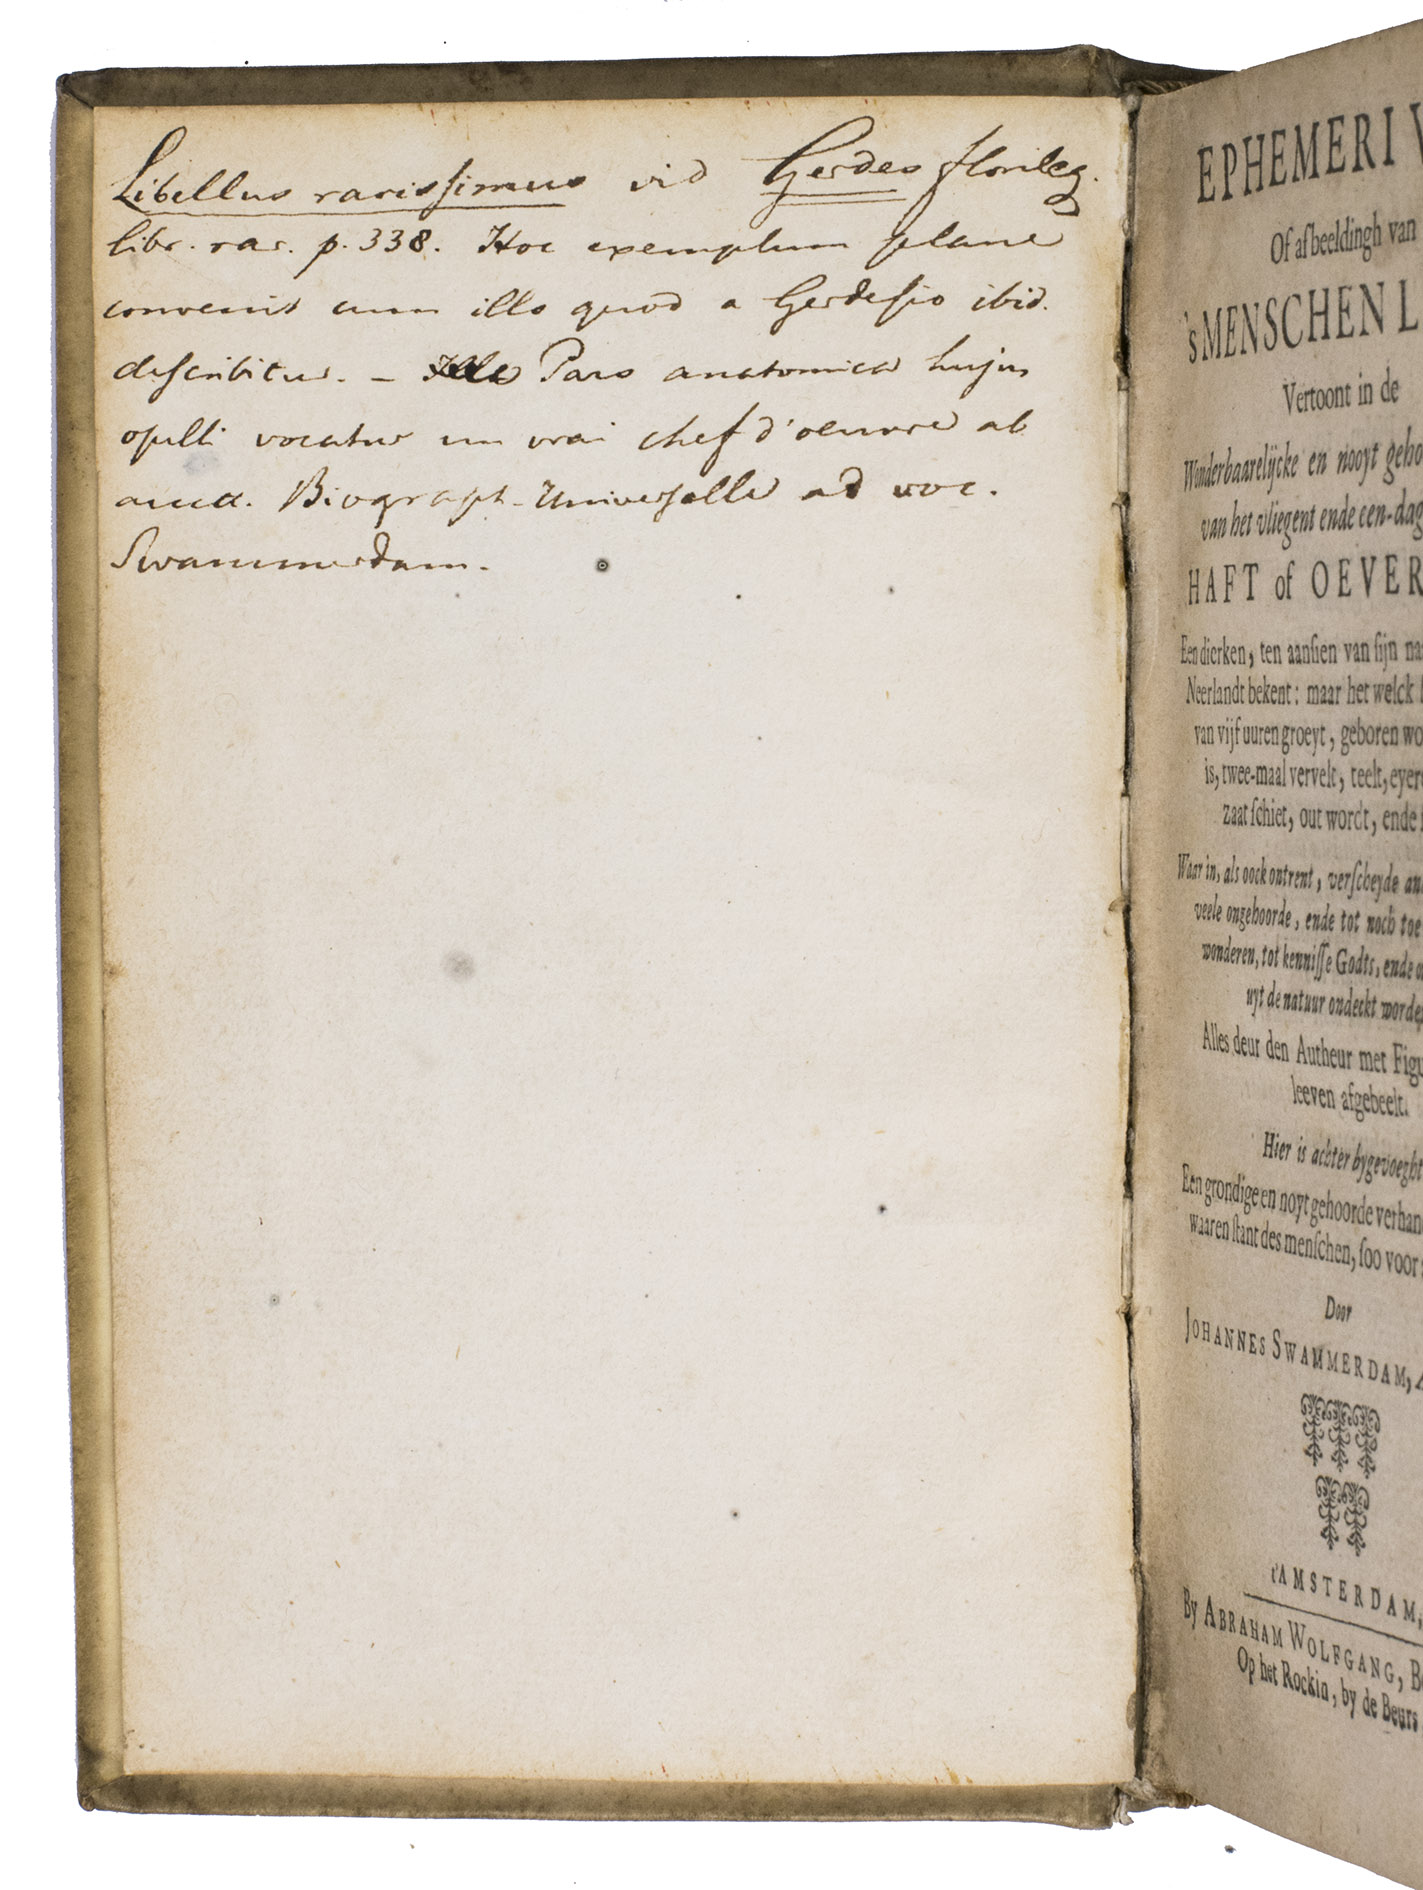 Libellus rarissimus vid Gerdes florileg.
libr. rar. p. 338. Hoc exemplum plane
convenit cum illo quod a Gerdesio ibid.
describitur. – Pars anatomica hujus
opelli vocatur un vrai chef d'oeuvre ab
auct. Biograph. Universelle ad voc.
Swammerdam.
EPHEMERI V
Of afbeeldingh van
's MENSCHEN L
Vertoont in de
Wonderbaarelijcke en nooyt geho
van het vliegent ende een-dag
HAFT of OEVER
Een dierken, ten aansien van sijn na
Neerlandt bekent: maar het welck
van vijf uuren groeyt, geboren wo
is, twee-maal vervelt, teelt, eyer
zaat schiet, out wordt, ende
Waar in, als oock ontrent, verscheyde an
veele ongehoorde, ende tot noch toe
wonderen, tot kennisse Godts, ende o
uyt de natuur ondeckt worde
Alles deur den Autheur met Figu
leeven afgebeelt.
Hier is achter bygevoeght
Een grondige en noyt gehoorde verhan
waaren stant des menschen, soo voor
Door
JOHANNES SWAMMERDAM,
t'AMSTERDAM,
By ABRAHAM WOLFGANG, B
Op het Rockin, by de Beurs